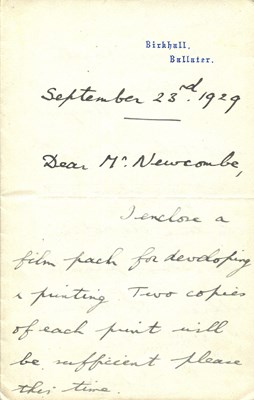 Birkhall,
Ballater.
September 23rd. 1929
Dear Mr. Newcombe,
I enclose a
film pack for developing
& printing. Two copies
of each print will
be sufficient please
this time.